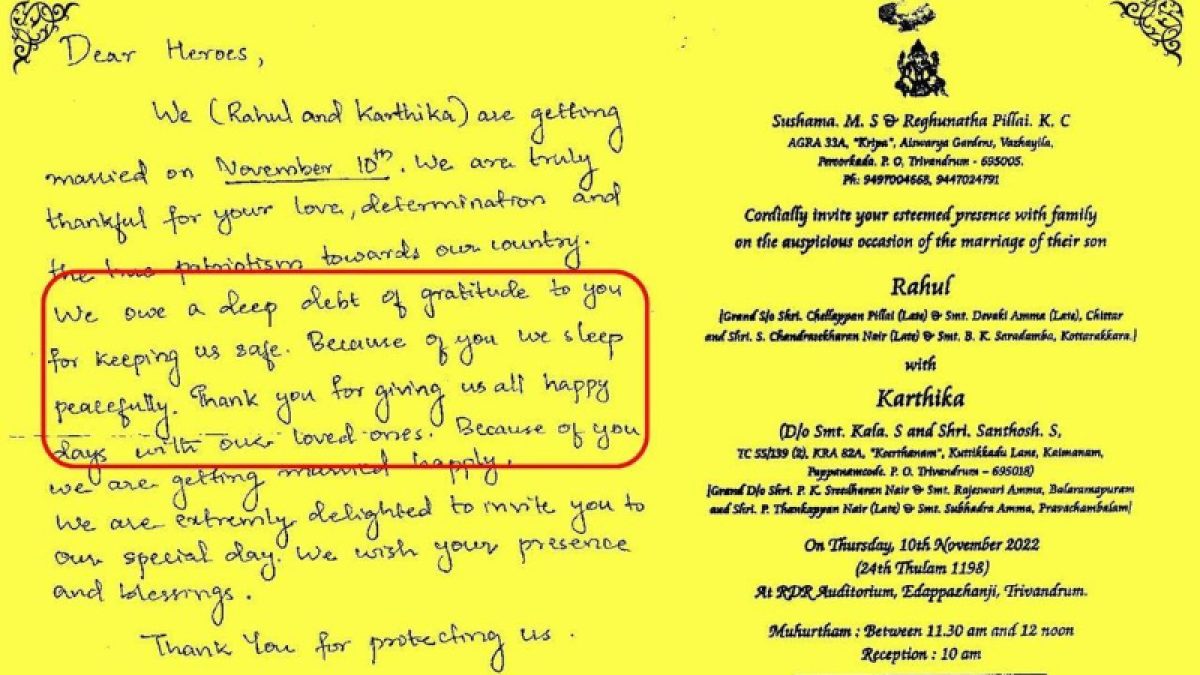 Dear Heroes,
We (Rahul and Karthika) are getting
married on November 10th. We are truly
thankful for your love, determination and
the true patriotism towards our country.
We owe a deep debt of gratitude to you
for keeping us safe. Because of you we sleep
peacefully. Thank you for giving us all happy
days with our loved ones. Because of you
we are getting married happily.
We are extremly delighted to invite you to
our special day. We wish your presence
and blessings.
Thank You for protecting us.
Sushama. M. S & Reghunatha Pillai. K. C
AGRA 33A, "Kripa", Aiswarya Gardens, Vazhayila,
Peroorkada. P. O, Trivandrum - 695005.
Ph: 9497004668, 9447024791
Cordially invite your esteemed presence with family
on the auspicious occasion of the marriage of their son
Rahul
[Grand S/o Shri. Chellappan Pillai (Late) & Smt. Devaki Amma (Late), Chittar
and Shri. S. Chandrasekharan Nair (Late) & Smt. B. K. Saradamba, Kottarakkara.]
with
Karthika
(D/o Smt. Kala. S and Shri. Santhosh. S,
TC 55/139 (2), KRA 82A, "Keerthanam", Kuttikkadu Lane, Kaimanam,
Pappanamcode. P. O. Trivandrum – 695018)
[Grand D/o Shri. P. K. Sreedharan Nair & Smt. Rajeswari Amma, Balaramapuram
and Shri. P. Thankappan Nair (Late) & Smt. Subhadra Amma, Pravachambalam]
On Thursday, 10th November 2022
(24th Thulam 1198)
At RDR Auditorium, Edappazhanji, Trivandrum.
Muhurtham : Between 11.30 am and 12 noon
Reception : 10 am